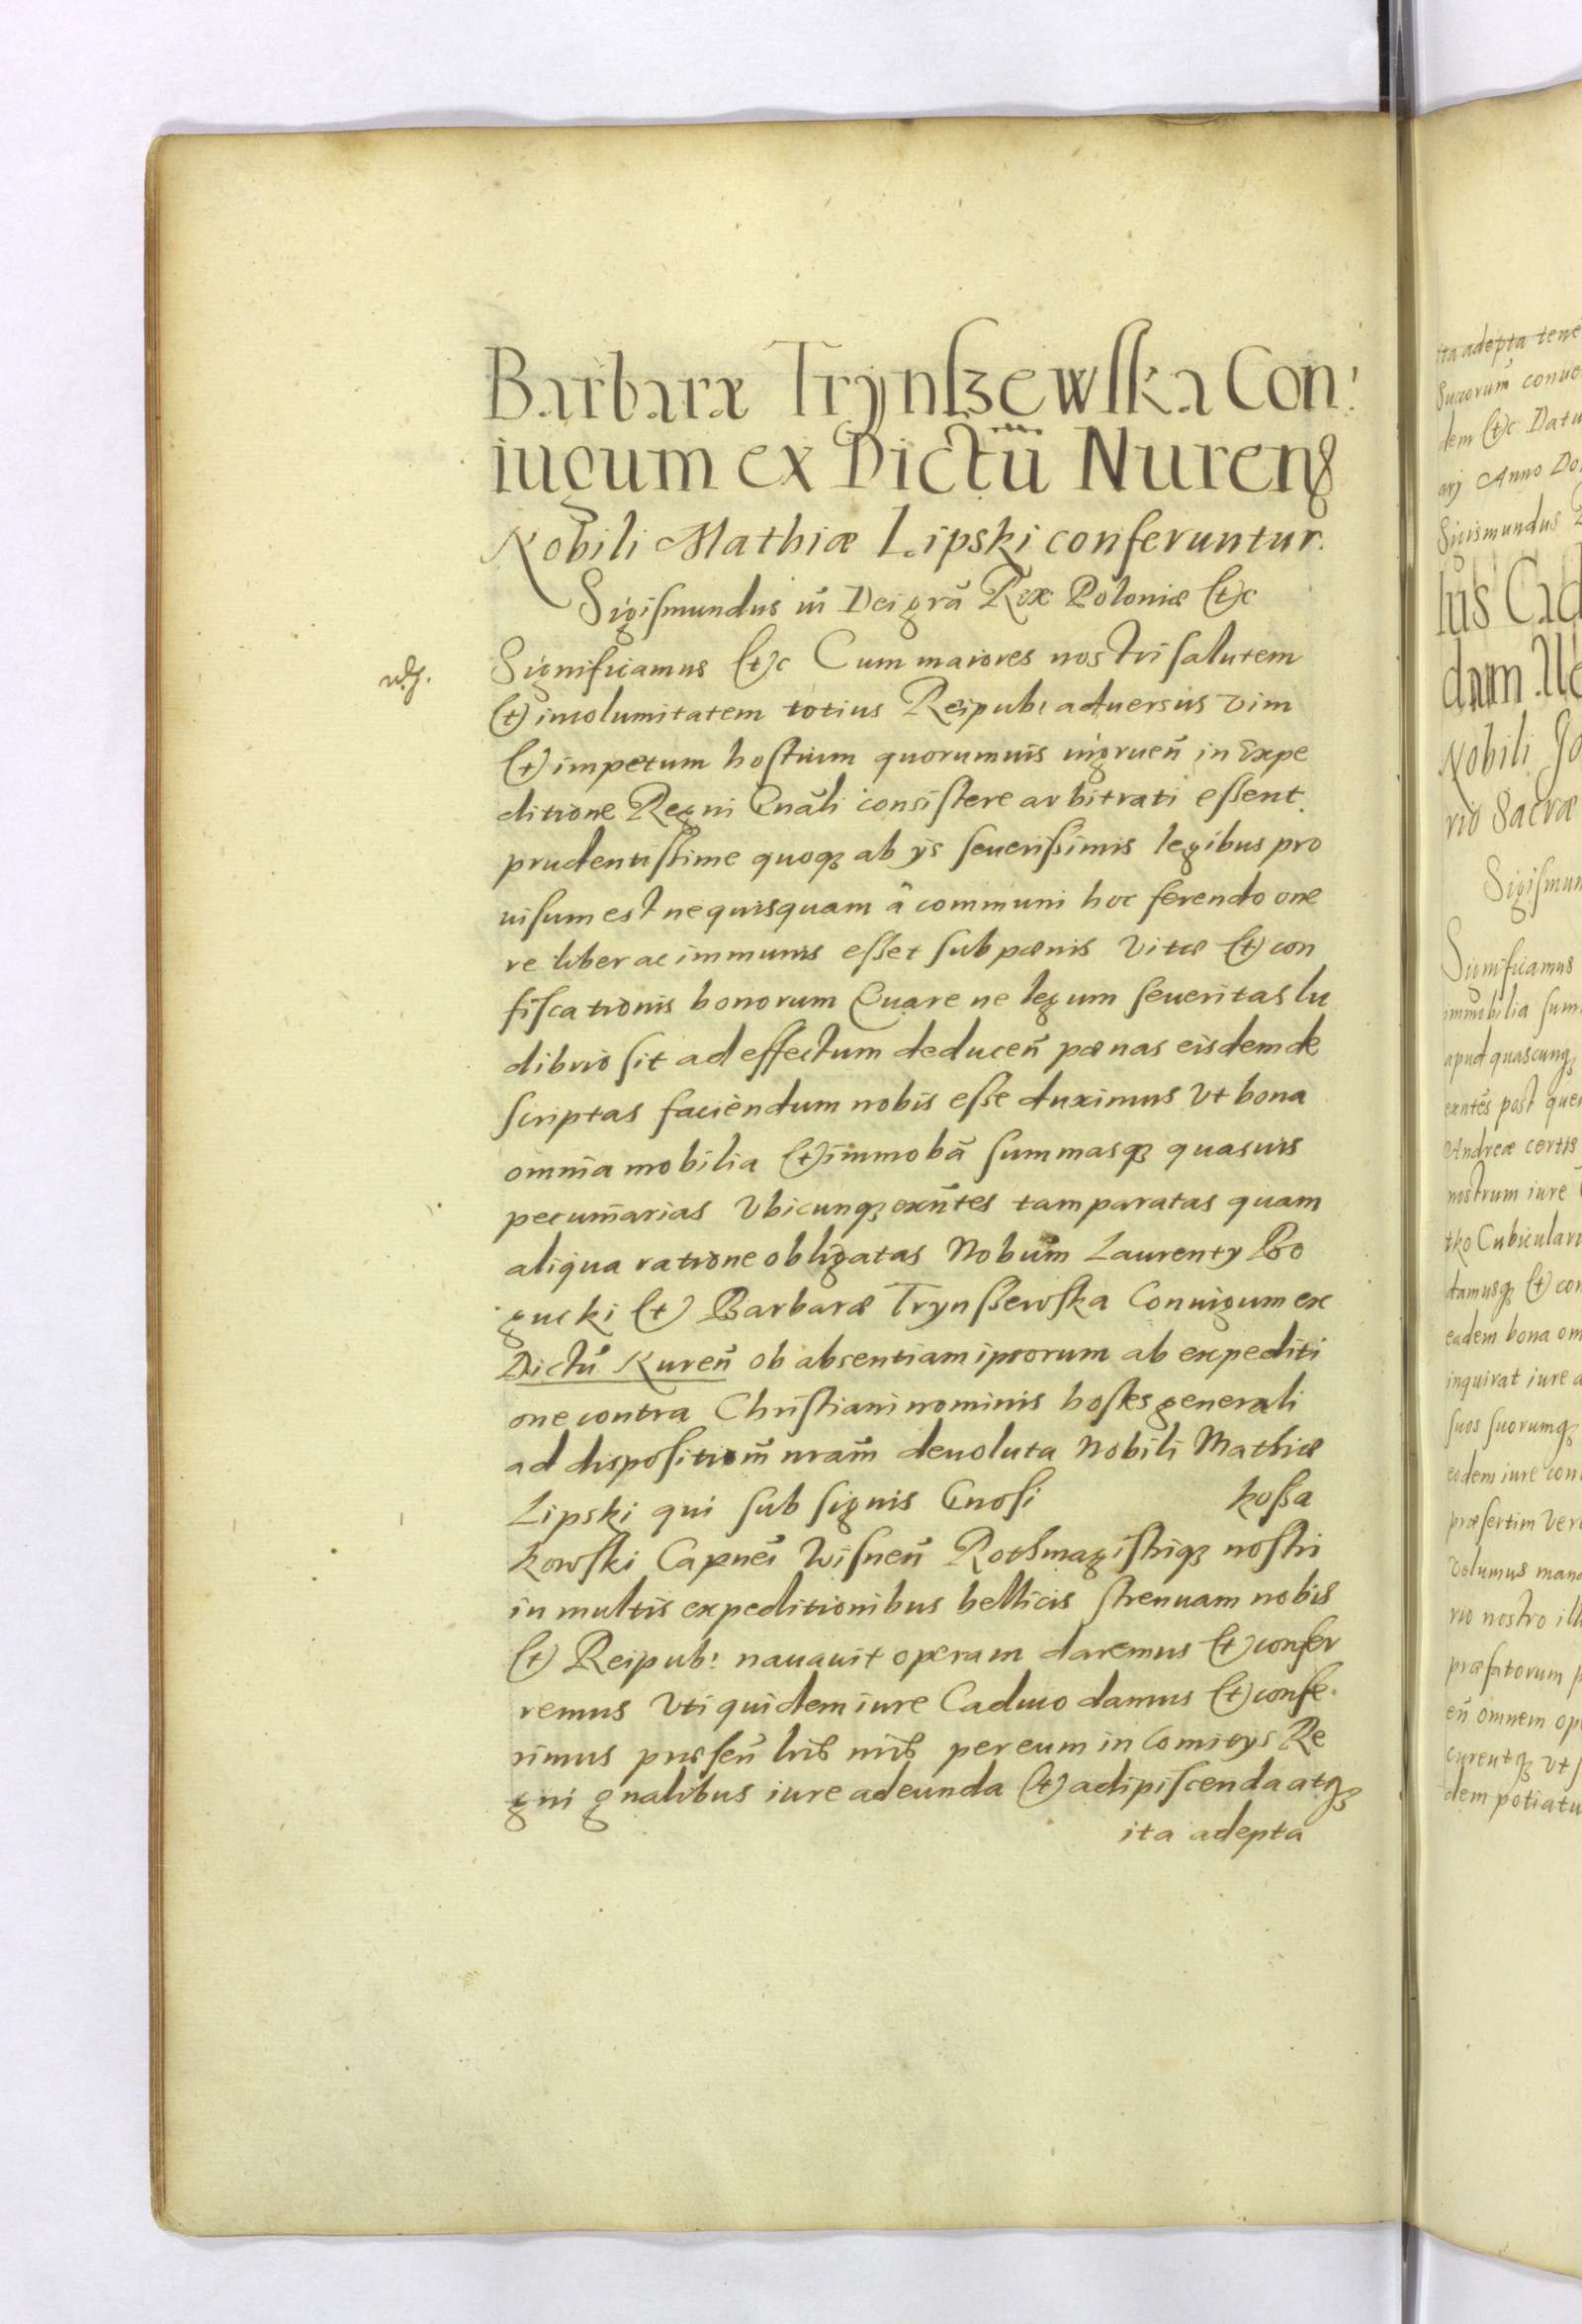 Barbaræ Trynszewska Con:
iugum ex Dictū Nureng
Nobili Mathiæ Lipski conferuntur.
Sigismundus iii Dei grā Rex Poloniæ &c
Significamus &c Cum maiores nostri salutem
& incolumitatem totius Reipub: aduersus vim
& impetum hostium quorumuis ingrueñ in Expe
ditione Regni Gnāli consistere arbitrati essent.
prudentissime quoq3 ab ijs seuerissimis legibus pro
uisum est ne quisquam â communi hoc ferendo one
re liber ac immunis esset sub pænis vitæ & con
fiscationis bonorum Quare ne legum seueritas lu
dibrio sit ad effectum deduceñ pænas eisdem de
scriptas faciendum nobis esse duximus vt bona
omnia mobilia & immobā summasq3 quasuis
pecuniarias vbicunq3 exntes tam paratas quam
aliqua ratione obligatas Nobum Laurenty Bo
gucki & Barbaræ Trynssewska Coniugum ex
Dictū Kureñ ob absentiam ipsorum ab expediti
one contra Christiani nominis hostes generali
ad dispositionm nram deuoluta Nobili Mathiæ
Lipski qui sub signis Gnosi Kossa
kowski Capnei Wisneñ Rothmagistriq3 nostri
in multis expeditionibus bellicis strenuam nobis
& Reipub: nauauit operam daremus & confer
remus vti quidem iure Caduco damus & confe
rimus præseñ lrib nrib per eum in Comitijs Re
gni gnalibus iure adeunda & adipiscenda atq3
ita adepta
ita adepta tene
Sigismundus
Nobili
Significamus
immobilia sum
apud quascunq3
exntes post
Andreæ certis
nostrum iure
tko Cubiculari
damusq3 & con
eadem bona om
inquirat iure a
suos suorumq3
eodem iure con
præsertim vero
volumus mana
rio nostro ill
præfatorum p
eñ omnem op
curentq3 vt
dem potiatu